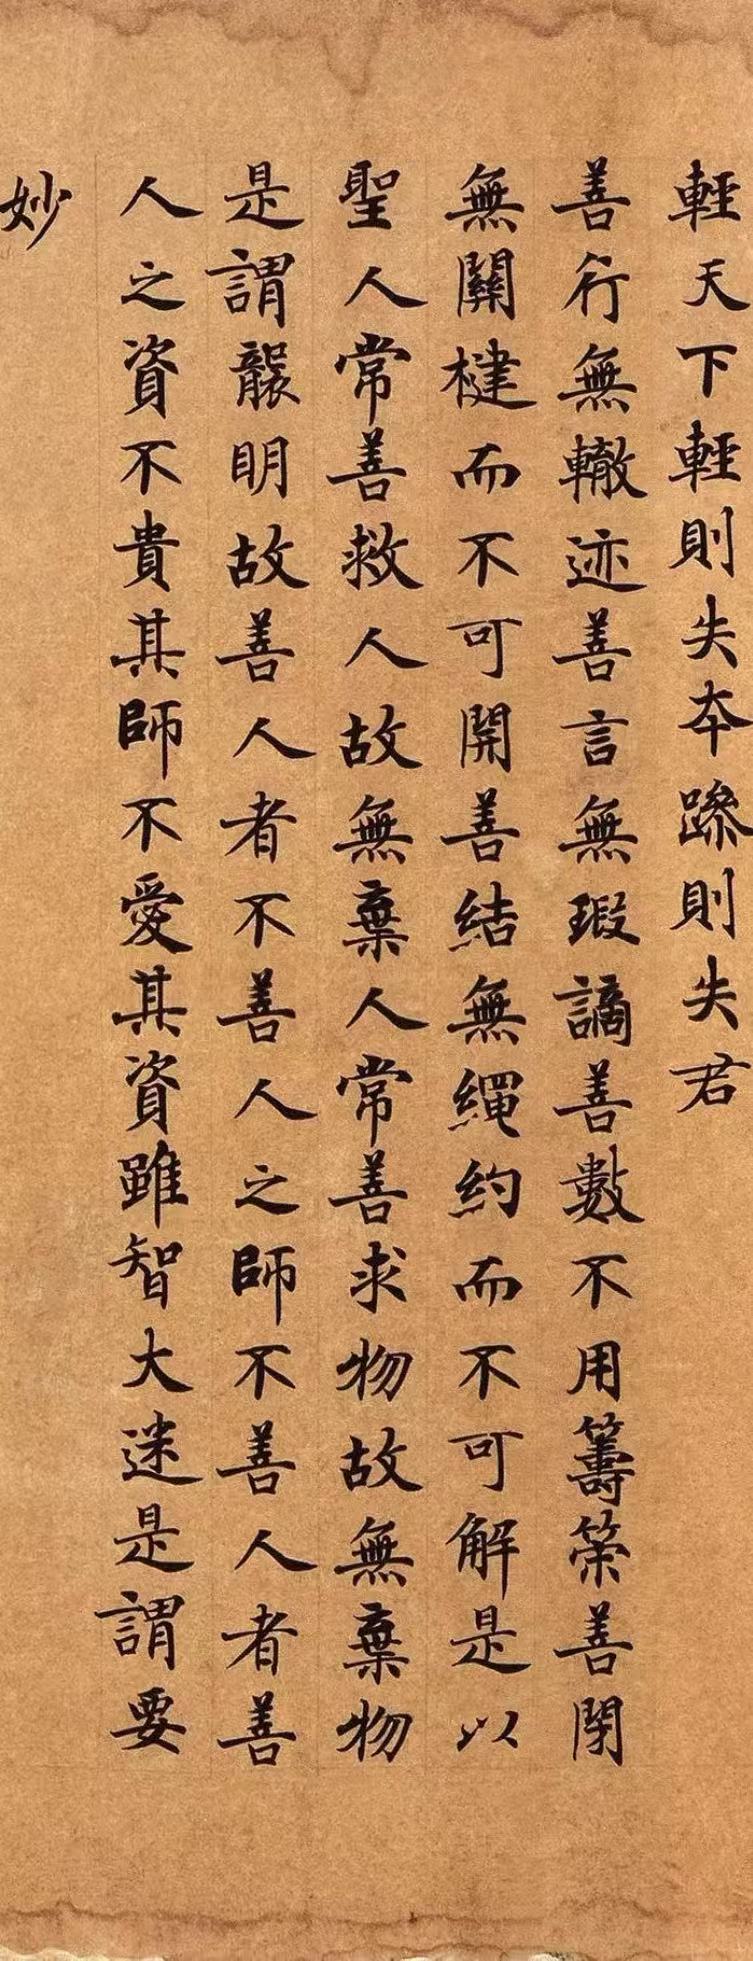 輕天下輕則失本躁則失君
善行無轍迹善言無瑕謫善數不用籌策善閉
無關楗而不可開善結無繩約而不可解是以
聖人常善救人故無棄人常善求物故無棄物
是謂襲明故善人者不善人之師不善人者善
人之資不貴其師不愛其資雖智大迷是謂要
妙